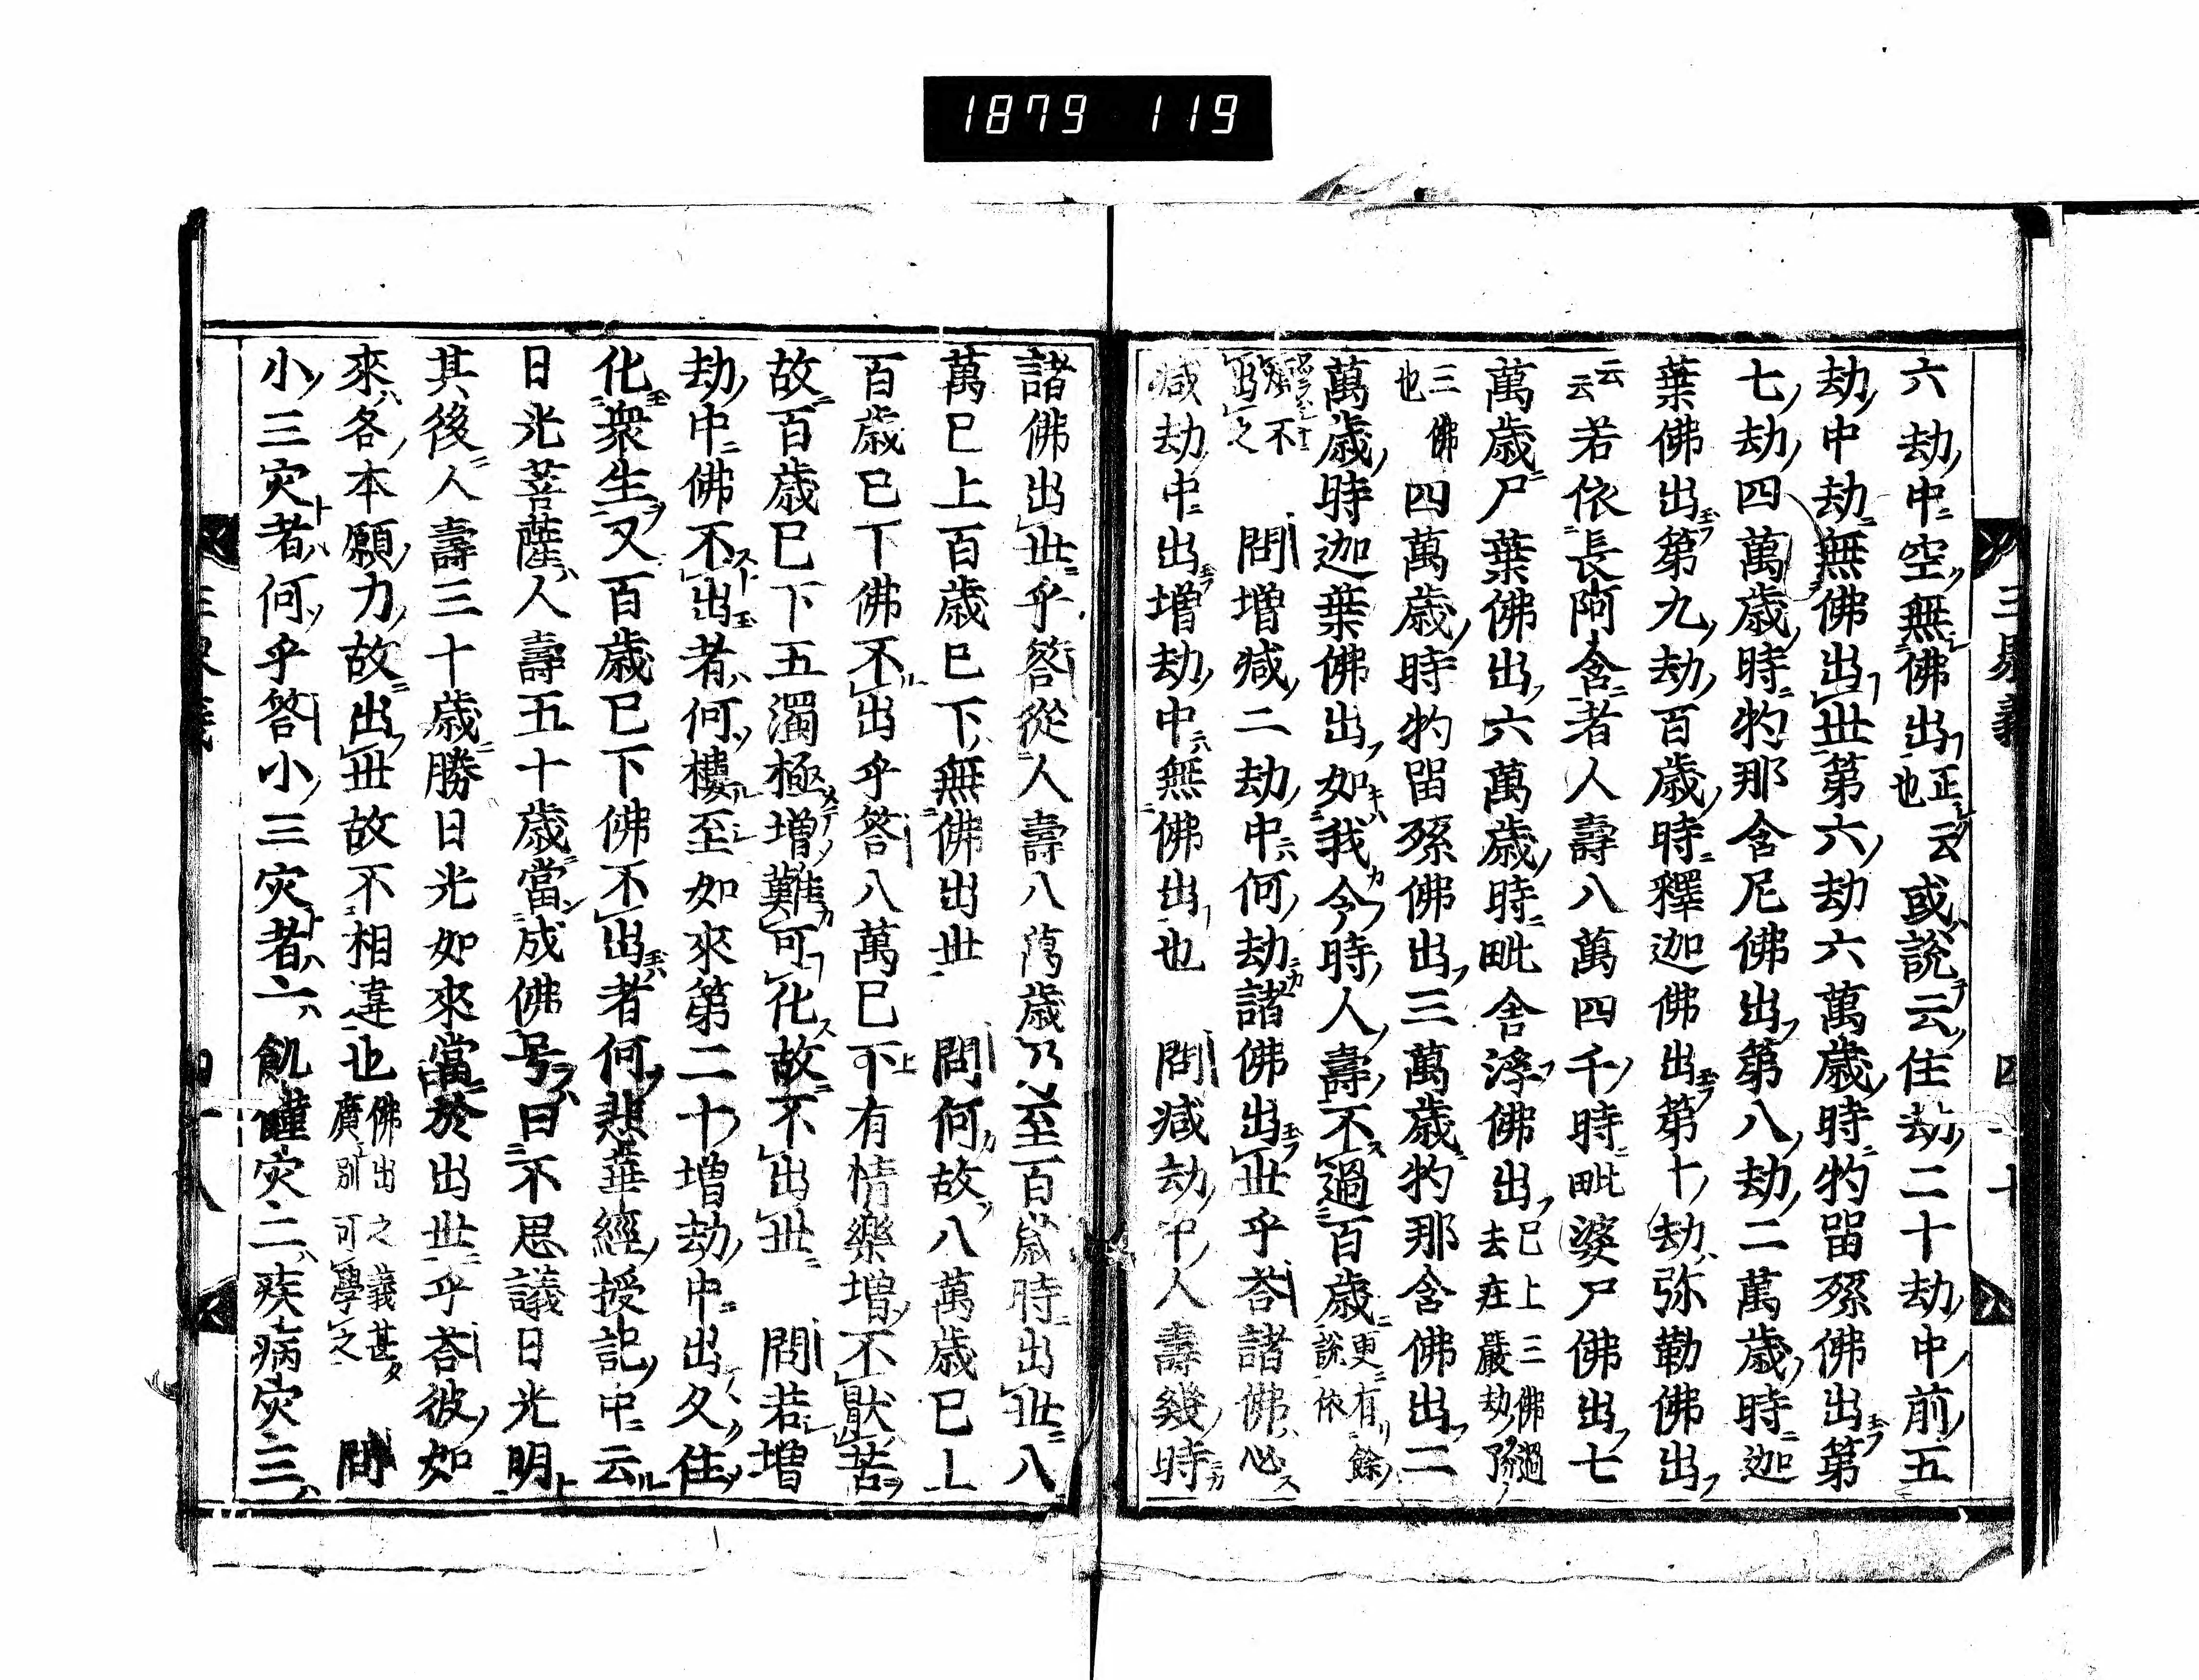 1879 119
六劫中空無佛出正云也或說云住劫二十劫中前五
劫中劫無佛出世第六劫六萬歲時牞畱孫佛出第
七劫四萬歲時牞那含尼佛出第八劫二萬歲時迦
葉佛出第九劫百歲時釋迦佛出第十劫弥勒佛出
云云若依長阿含者人壽八萬四千時毗婆尸佛出七
萬歲尸葉佛出六萬歲時毗舍浮佛出巳上三佛過去在嚴劫
三佛也四萬歲時牞畱孫佛出三萬歲牞那含佛出二
萬歲時迦葉佛出如我今時人壽不過百歲更有餘說依
不出之 問增減二劫中何劫諸佛出世乎荅諸佛必
減劫中出增劫中無佛出也 問減劫中人壽幾時
諸佛出世乎答從人壽八萬歲乃至百歲時出世八
萬巳上百歲巳下無佛出世 問何故八萬歲巳上
百歲巳下佛不出乎答八萬巳下有情樂增不猒苦
故百歲巳下五濁極增難可化故不出世 問若增
劫中佛不出者何樓至如來第二十增劫中出久住
化衆生又百歲巳下佛不出者何悲華經授記中云
日光菩薩人壽五十歲當成佛号曰不思議日光明
其後人壽三十歲勝日光如來當於出世乎荅彼如
來各本願力故出世故不相違也佛出之義甚廣別可學之 問
小三灾者何乎答小三灾者一飢饉灾二疾病灾三
三界義
四十
四十八